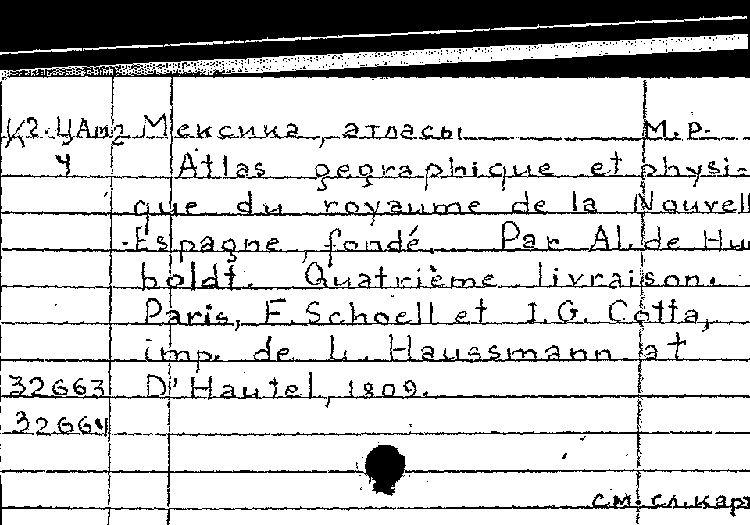 К2.ЦАм2 Мексика, атласы М.Р.
4 Atlas geographique et physi-
que du royaume de la Nouvell
-Espagne, fondé. Par Al. de Hu
boldt. Quatrième livraison.
Paris, F. Schoell et I.G. Cotta,
imp. de L. Haussmann at
32663 D'Hautel, 1809.
32664
см. сл. карт